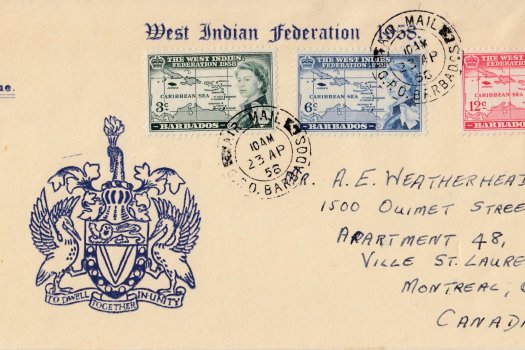 West Indian Federation 1958.
ue.
THE WEST INDIES
FEDERATION 1958
CARIBBEAN SEA
3c
BARBADOS
THE WEST INDIES
FEDERATION 1958
CARIBBEAN SEA
6c
BARBADOS
THE WEST INDIES
FEDERATION 1958
CARIBBEAN SEA
12c
BARBADOS
AIR MAIL
10AM
23 AP
56
G.P.O. BARBADOS
AIR MAIL
10AM
23 AP
56
G.P.O. BARBADOS
R. A. E. WEATHERHEAD
1500 OUIMET STREE
APARTMENT 48,
VILLE ST. LAURE
MONTREAL, Q
CANADA
TO DWELL TOGETHER IN UNITY